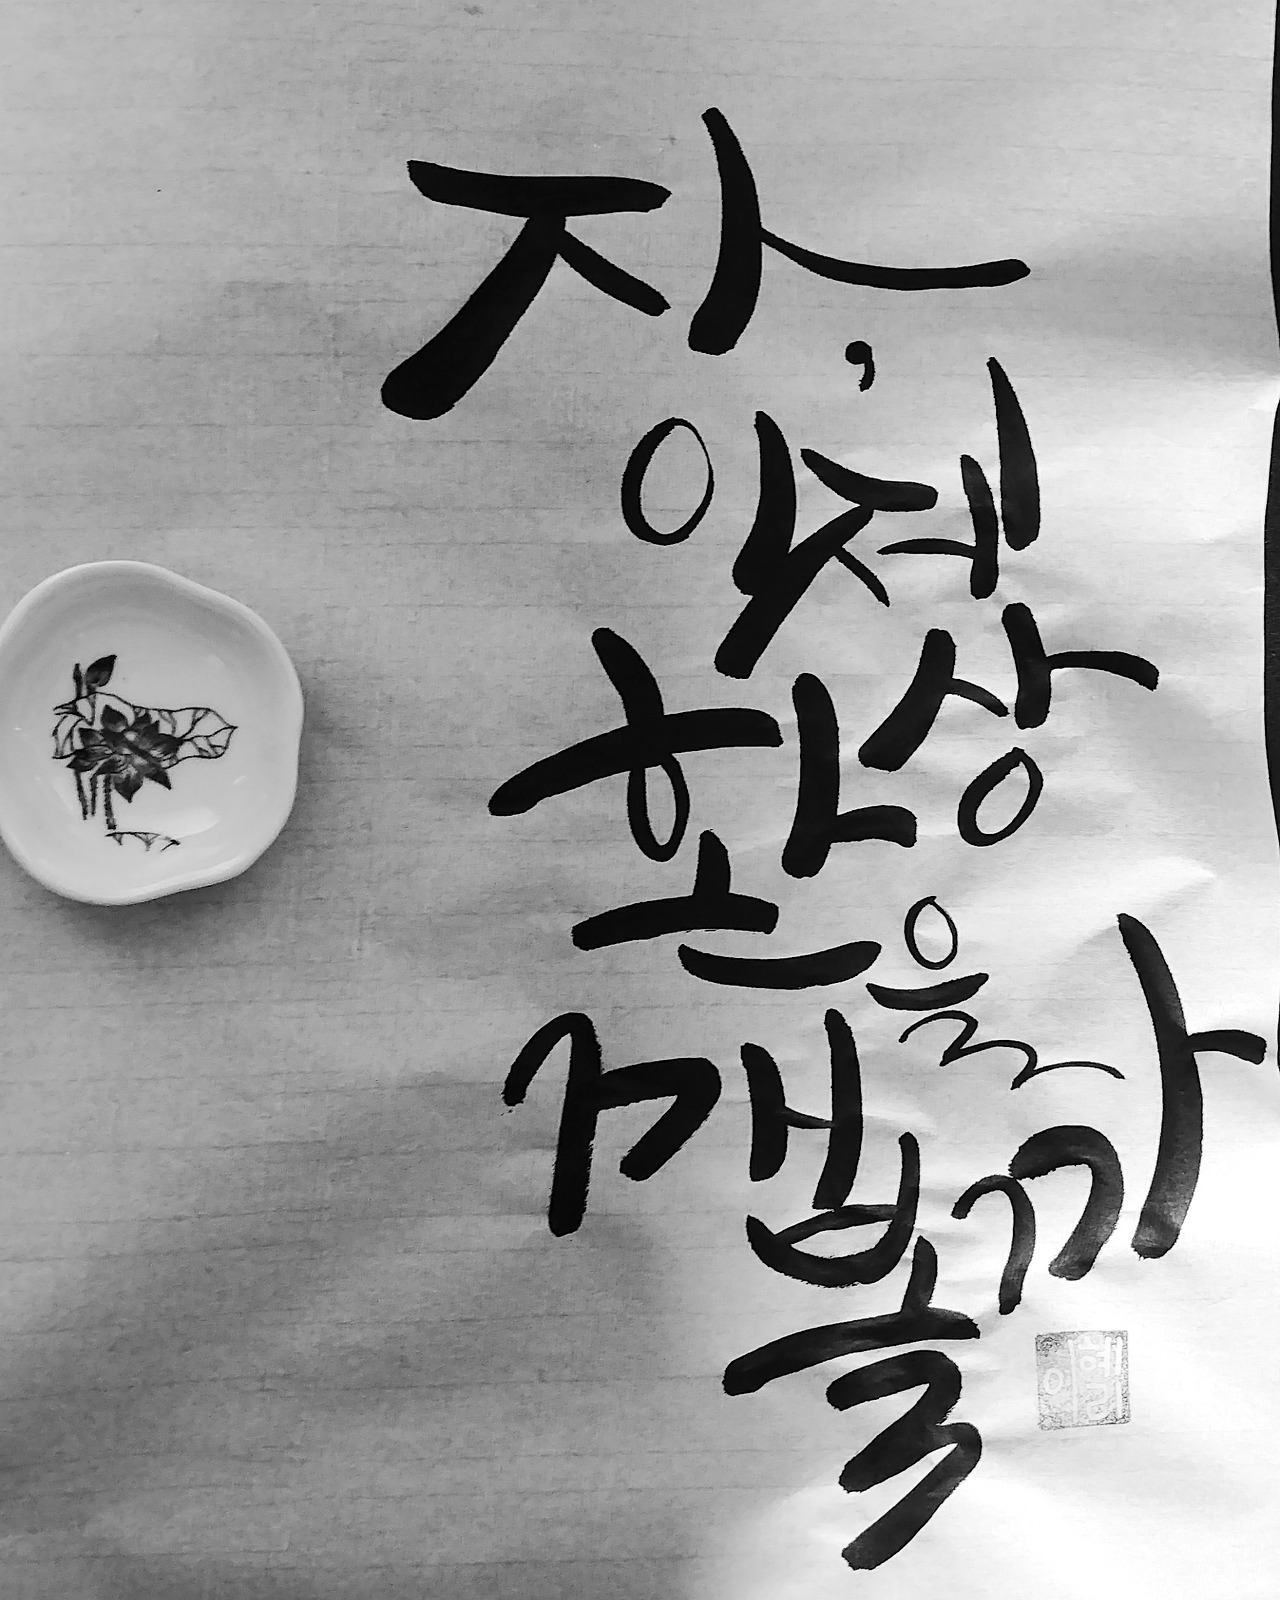 자,
이제
환상
을
깨 볼까